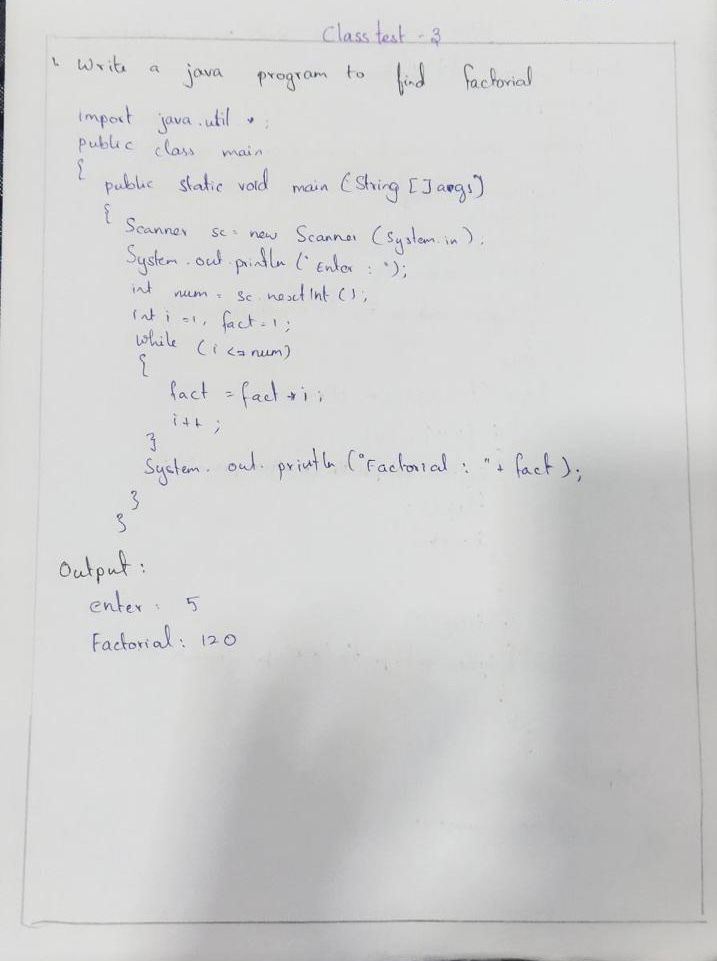 Class test - 3
1. Write a java program to find factorial
import java.util *;
public class main
{
public static void main (String [] args)
{
Scanner sc = new Scanner (System.in);
System.out.println ("Enter : ");
int num = sc.nextInt ();
int i =1, fact =1;
while (i <= num)
{
fact = fact * i;
i++ ;
}
System. out. println ("Factorial : "+ fact);
}
}
Output :
enter : 5
Factorial : 120